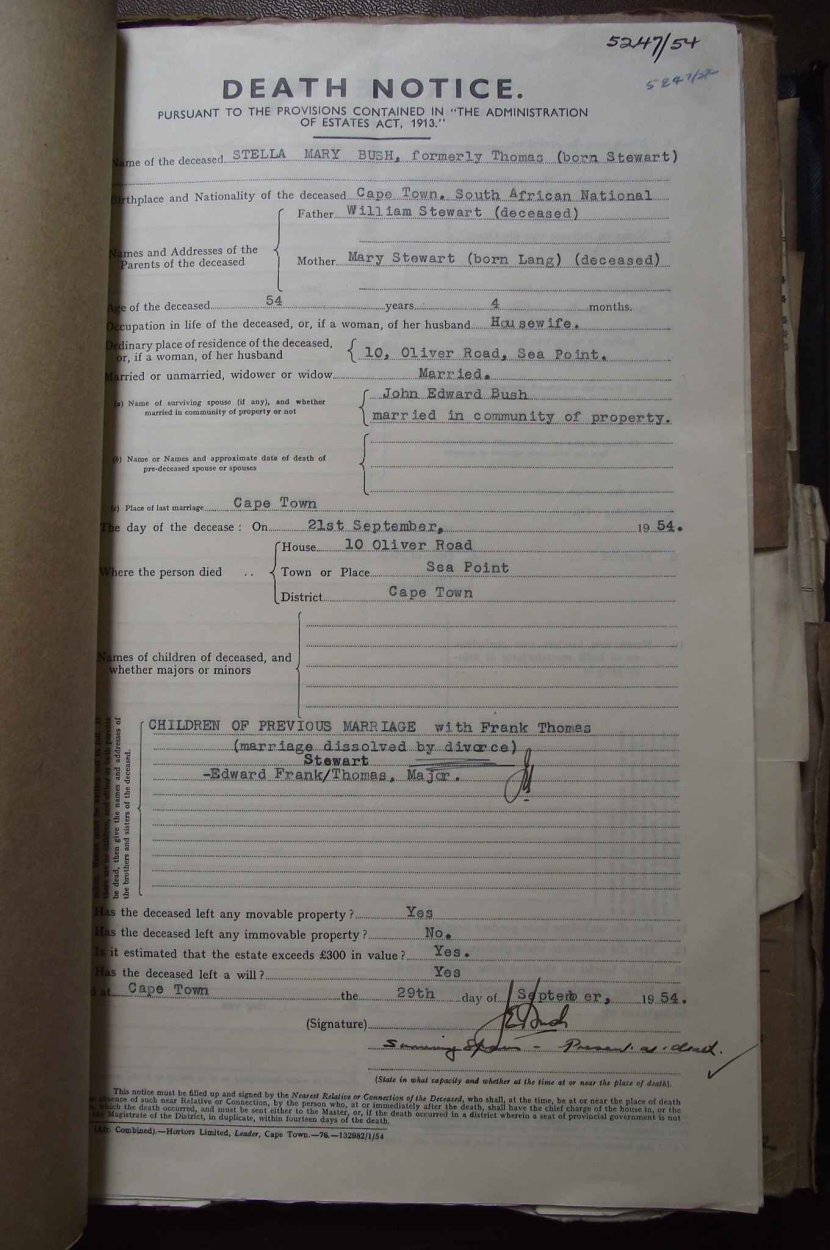 5247/54
5247/54
DEATH NOTICE.
PURSUANT TO THE PROVISIONS CONTAINED IN "THE ADMINISTRATION
OF ESTATES ACT, 1913."
ame of the deceased STELLA MARY BUSH, formerly Thomas (born Stewart)
irthplace and Nationality of the deceased Cape Town. South African National
Father William Stewart (deceased)
Names and Addresses of the
Parents of the deceased
Mother Mary Stewart (born Lang) (deceased)
Age of the deceased 54 years 4 months.
Occupation in life of the deceased, or, if a woman, of her husband Housewife.
Ordinary place of residence of the deceased,
or, if a woman, of her husband 10, Oliver Road, Sea Point.
Married or unmarried, widower or widow Married.
(a) Name of surviving spouse (if any), and whether
married in community of property or not
John Edward Bush
married in community of property.
(b) Name or Names and approximate date of death of
pre-deceased spouse or spouses
(c) Place of last marriage Cape Town
The day of the decease: On 21st September, 19 54.
House 10 Oliver Road
Where the person died .. Town or Place Sea Point
District Cape Town
Names of children of deceased, and
whether majors or minors
CHILDREN OF PREVIOUS MARRIAGE with Frank Thomas
(marriage dissolved by divorce)
Stewart
-Edward Frank/Thomas, Major.
be dead, then give the names and addresses of
the brothers and sisters of the deceased.
Has the deceased left any movable property? Yes
Has the deceased left any immovable property? No.
Is it estimated that the estate exceeds £300 in value? Yes.
Has the deceased left a will? Yes
d at Cape Town the 29th day of September, 19 54.
(Signature) JEBush
Surviving Spouse - Present at death.
(State in what capacity and whether at the time at or near the place of death).
This notice must be filled up and signed by the Nearest Relative or Connection of the Deceased, who shall, at the time, be at or near the place of death
absence of such near Relative or Connection, by the person who, at or immediately after the death, shall have the chief charge of the house in, or the
which the death occurred, and must be sent either to the Master, or, if the death occurred in a district wherein a seat of provincial government is not
Magistrate of the District, in duplicate, within fourteen days of the death.
(Afr. Combined).—Hortors Limited, Leader, Cape Town.—76.—132982/1/54